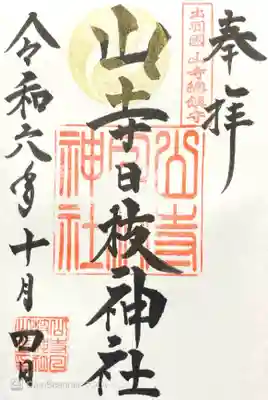 奉拝
出羽國 山寺總鎮守
山寺日枝神社
山寺
神社
令和六年十月四日